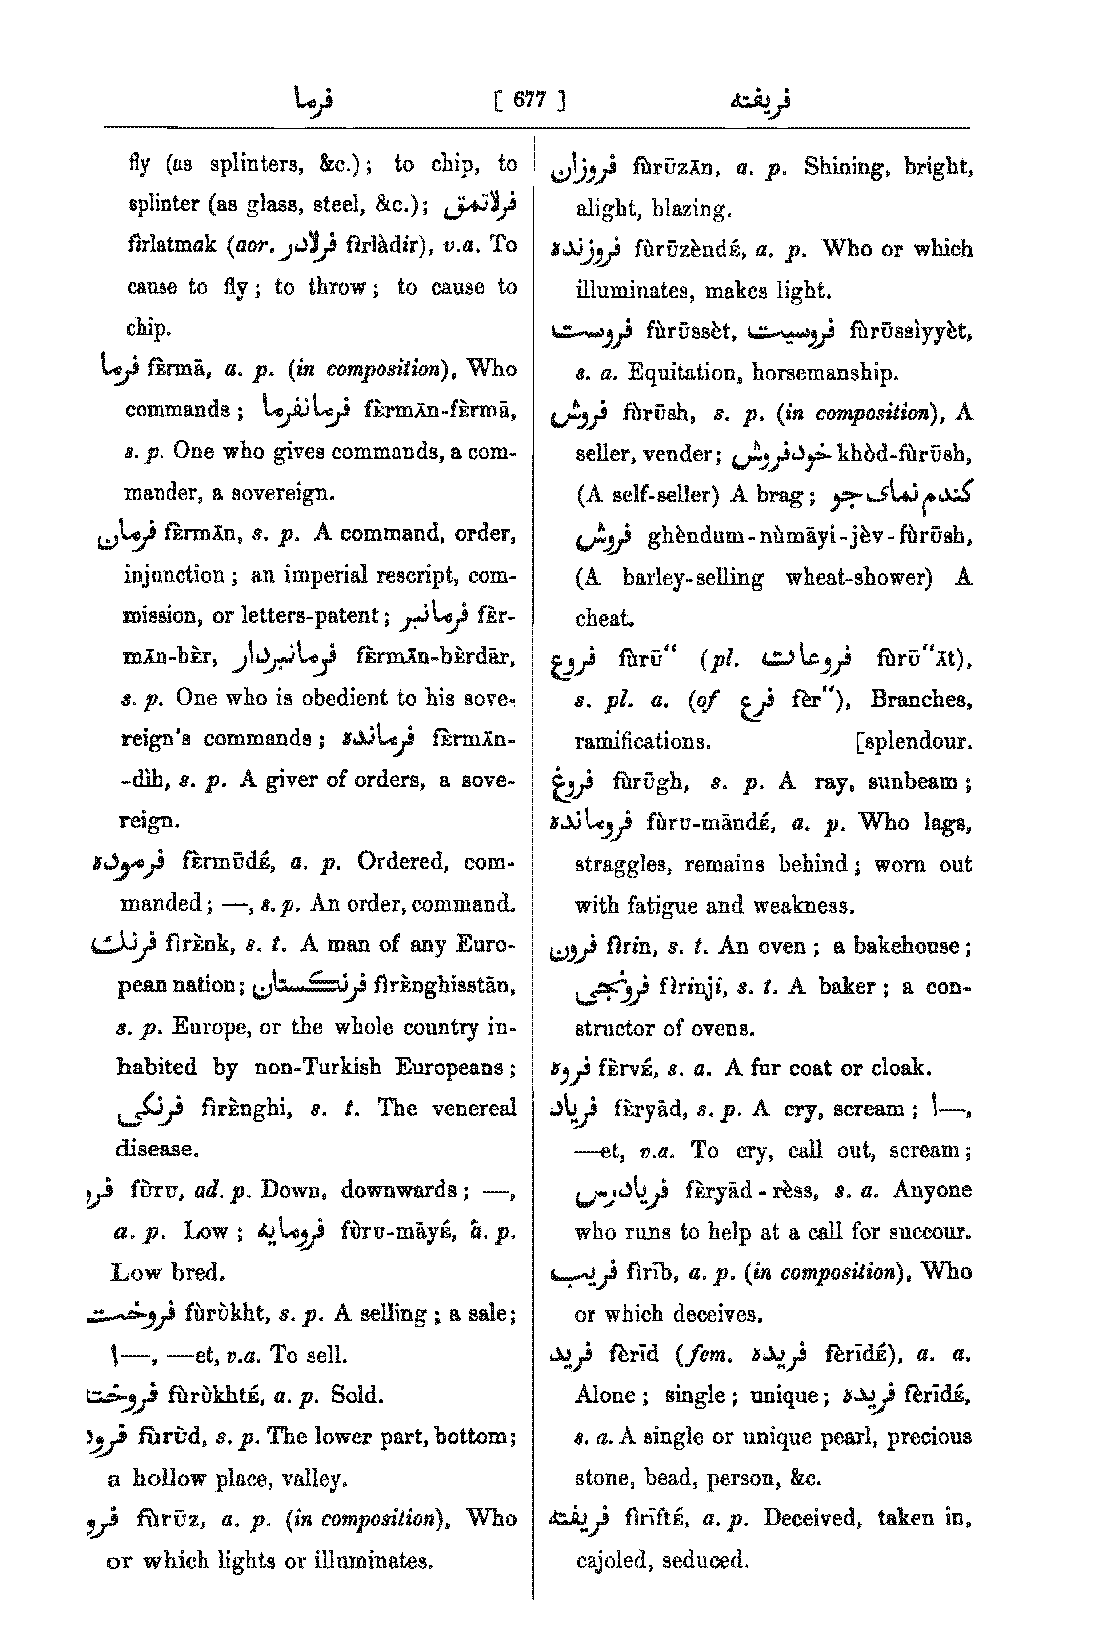 فرما [ 677 ] فريفته
fly (as splinters, &c.); to chip, to
splinter (as glass, steel, &c.); فرلاتمق
fìrlatmak (aor. فرلادر fìrlàdir), v.a. To
cause to fly; to throw; to cause to
chip.
فرما fÈrmā, a. p. (in composition), Who
commands; فرمانفرما fÈrmĀn-fÈrmā,
s. p. One who gives commands, a com-
mander, a sovereign.
فرمان fÈrmĀn, s. p. A command, order,
injunction; an imperial rescript, com-
mission, or letters-patent; فرمانبر fÈr-
mĀn-bÈr, فرمانبردار fÈrmĀn-bÈrdār,
s. p. One who is obedient to his sove-
reign's commands; فرمانده fÈrmĀn-
-dìh, s. p. A giver of orders, a sove-
reign.
فرموده fÈrmŪdÉ, a. p. Ordered, com-
manded; —, s. p. An order, command.
فرنك fìrÈnk, s. t. A man of any Euro-
pean nation; فرنكستان fìrÈnghisstān,
s. p. Europe, or the whole country in-
habited by non-Turkish Europeans;
فرنكى fìrÈnghi, s. t. The venereal
disease.
فرو fùrU, ad. p. Down, downwards; —,
a. p. Low; فرومايه fùrU-māyÉ, a. p.
Low bred.
فروخت fùrÙkht, s. p. A selling; a sale;
ا—, —et, v.a. To sell.
فروخت fùrÙkhtÉ, a. p. Sold.
فرود fùrÙd, s. p. The lower part, bottom;
a hollow place, valley.
فرو fùrŪz, a. p. (in composition), Who
or which lights or illuminates.
فروزان fùrŪzĀn, a. p. Shining, bright,
alight, blazing.
فروزنده fùrŪzèndÉ, a. p. Who or which
illuminates, makes light.
فروست fùrŪssèt, فروسيت fùrŪssìyyèt,
s. a. Equitation, horsemanship.
فروش fùrŪsh, s. p. (in composition), A
seller, vender; خودفروش khòd-fùrŪsh,
(A self-seller) A brag; كندم نماى جو
فروش ghèndum-nùmāyi-jèv-fùrŪsh,
(A barley-selling wheat-shower) A
cheat.
فروع fùrŪ“ (pl. فروعات fùrŪ“Āt),
s. pl. a. (of فرع fèr“), Branches,
ramifications. [splendour.
فروغ fùrŪgh, s. p. A ray, sunbeam;
فرومانده fùrU-māndÉ, a. p. Who lags,
straggles, remains behind; worn out
with fatigue and weakness.
فرون fìrin, s. t. An oven; a bakehouse;
فرونجى fìrinjí, s. t. A baker; a con-
structor of ovens.
فروه fÈrvÉ, s. a. A fur coat or cloak.
فرياد fÈryād, s. p. A cry, scream; ا—,
—et, v.a. To cry, call out, scream;
فريادرس fÈryād-rèss, s. a. Anyone
who runs to help at a call for succour.
فريب fìrīb, a. p. (in composition), Who
or which deceives.
فريد fèrīd (fem. فريده fèrīdÉ), a. a.
Alone; single; unique; فريده fèrīdÉ,
s. a. A single or unique pearl, precious
stone, bead, person, &c.
فريفته fìrīftÉ, a. p. Deceived, taken in,
cajoled, seduced.